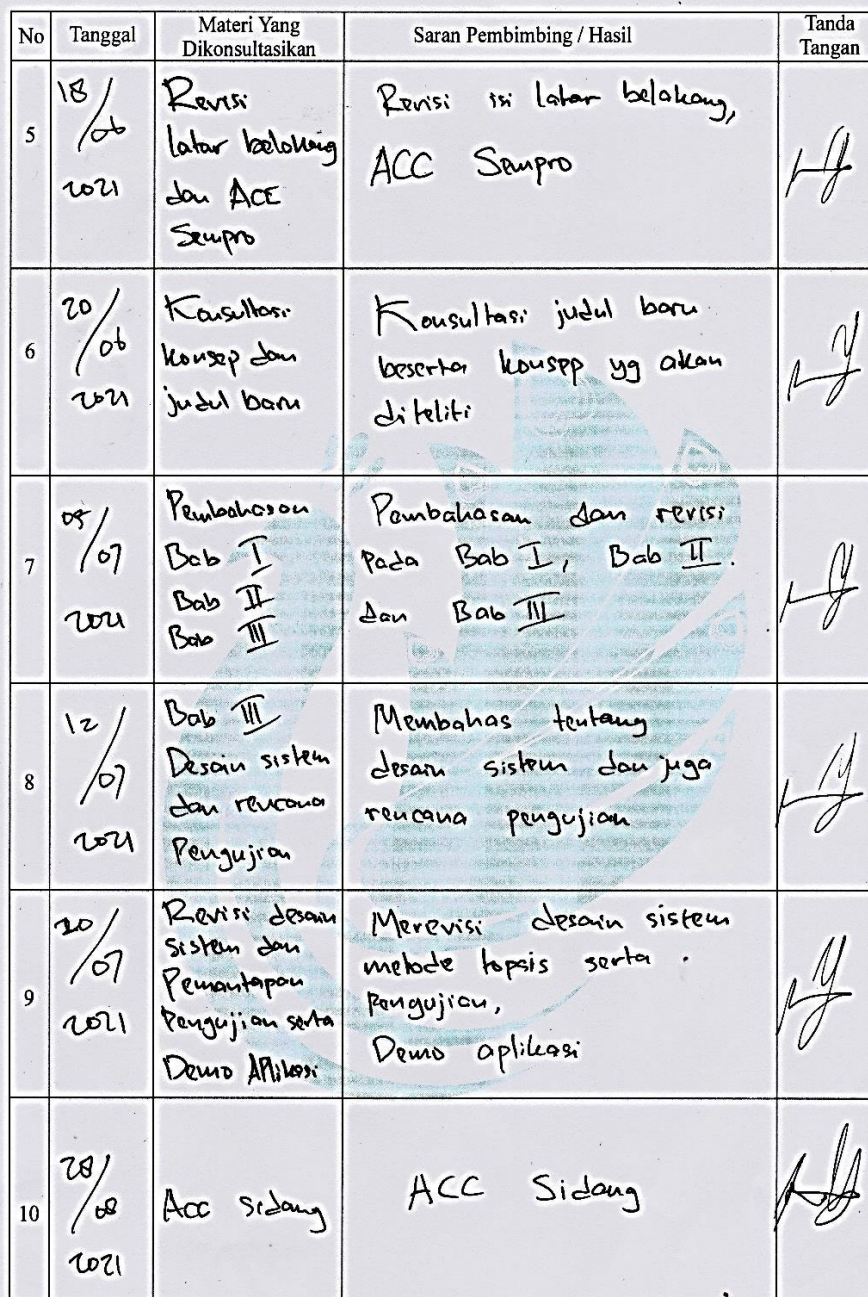 No Tanggal Materi Yang Dikonsultasikan Saran Pembimbing / Hasil Tanda Tangan
5
18/06
2021
Revisi
latar belakang
dan ACC
Sempro
Revisi isi latar belakang,
ACC Sempro
6
20/06
2021
Konsultasi
konsep dan
judul baru
Konsultasi judul baru
beserta konsep yg akan
diteliti
7
05/07
2021
Pembahasan
Bab I
Bab II
Bab III
Pembahasan dan revisi
pada Bab I, Bab II.
dan Bab III
8
12/07
2021
Bab III
Desain sistem
dan rencana
Pengujian
Membahas tentang
desain sistem dan juga
rencana pengujian
9
20/07
2021
Revisi desain
sistem dan
Pemantapan
Pengujian serta
Demo Aplikasi
Merevisi desain sistem
metode topsis serta
pengujian,
Demo aplikasi
10
28/08
2021
Acc sidang
ACC Sidang